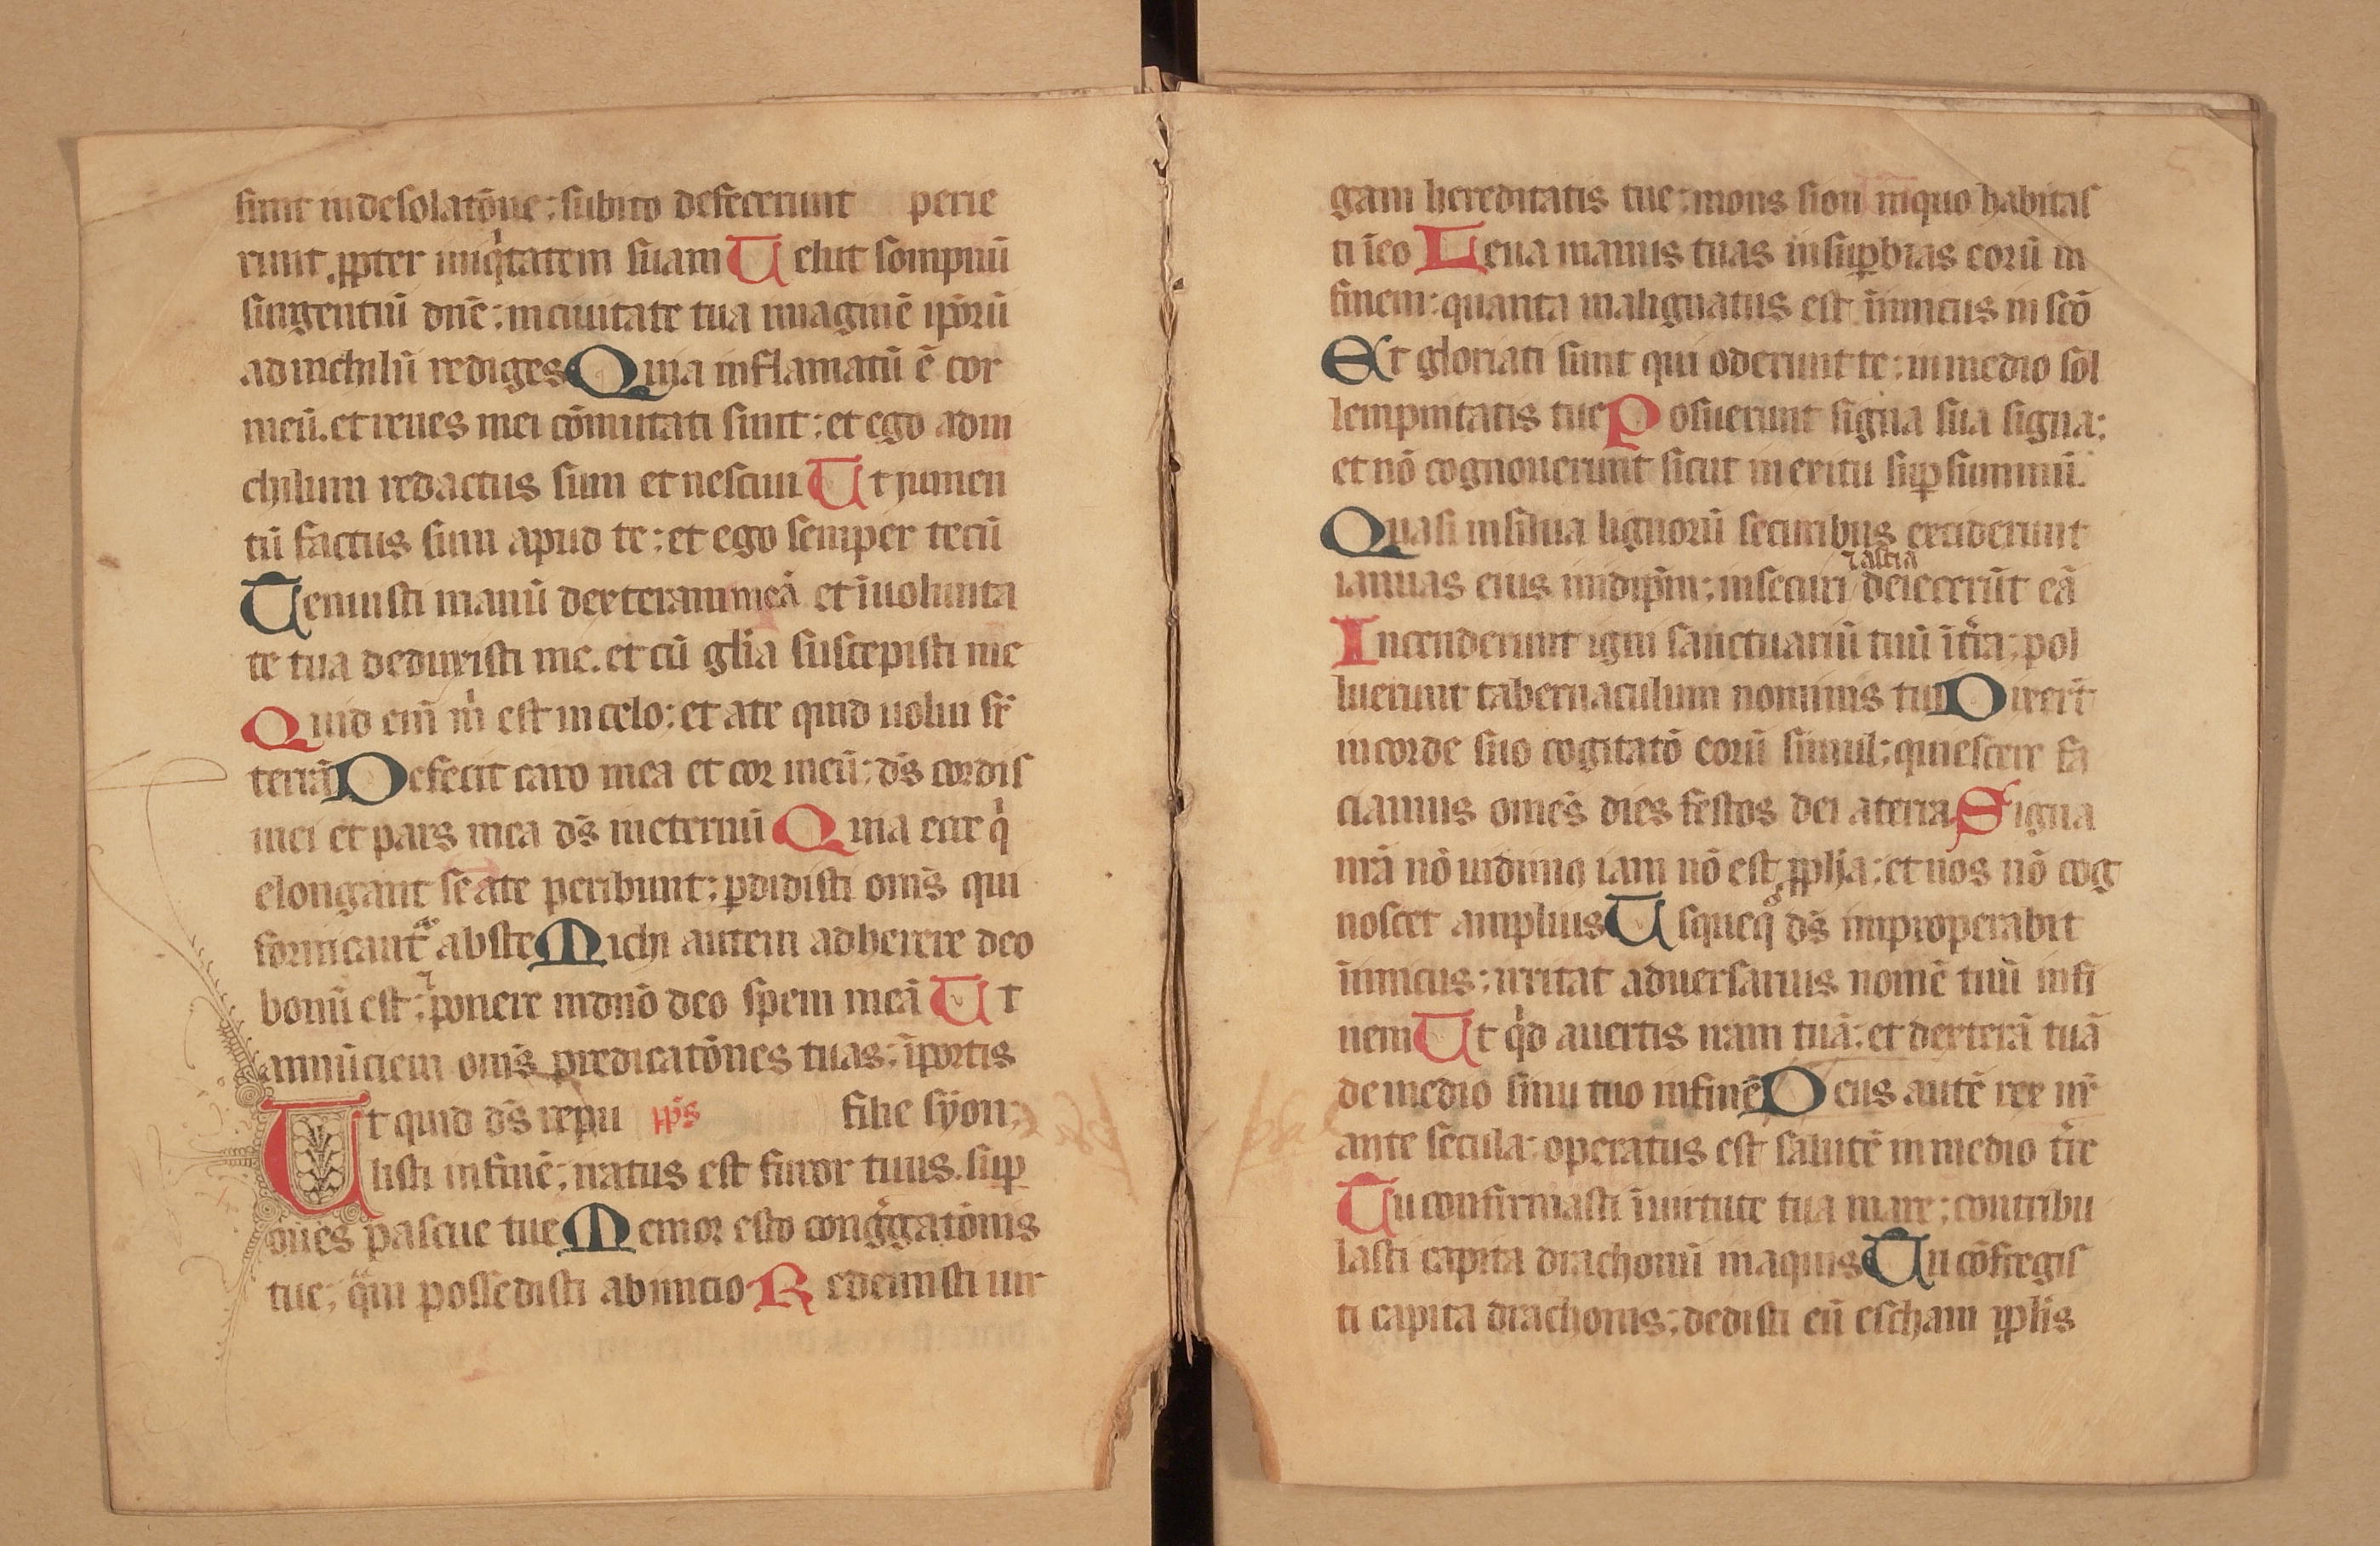 sunt in desolatōne: subito defecerunt perie
runt ꝓpter iniqͥtatem suam Uelut sompnū
surgentiū dnē: in ciuitate tua ymaginē ipōrū
ad nichilū rediges Quia inflamatū ē cor
meū. et renes mei cōmutati sunt: et ego ad ni
chilum redactus sum et nesciui Ut jumen
tū factus sum apud te: et ego semper tecū
Tenuisti manū dexteram meā et ī uolunta
te tua deduxisti me. et cū glīa suscepisti me
Quid eni̅ mͥ est in celo: et a te quid uolui sr̄
terrā Defecit caro mea et cor meū: ds̄ cordis
mei et pars mea ds̄ in eternū Quia ecce qͥ
elongant se a te peribunt: ꝑdidisti oms̄ qui
fornicant᷑ abs te Michi autem adherere deo
bonū est: ⁊ ponere in dn̄o deo spem meā Ut
annūciem oms̄ predicatōnes tuas: ī portis
Ut quid ds̄ repu ps̄ filie syon:
listi in finē: iratus est furor tuus. suꝑ
oues pascue tue Memor esto congͣgatōnis
tue: qͣm possedisti ab inicio Redemisti uir
gam hereditatis tue: mons sion in quo habitas
ti ī eo Leua manus tuas in suꝑbias eorū in
finem: quanta malignatus est īnimicus in scō
Et gloriati sunt qui oderunt te: in medio sol
lempnitatis tue Posuerunt signa sua signa:
et nō cognouerunt sicut in exitu suꝑ summū.
Quasi in silua lignorū securibus exciderunt
⁊ ascia
ianuas eius in idip̄m: in securi / deiecerūt eā
Incenderunt igni sanctuariū tuū ī tͬra: pol
luerunt tabernaculum nominis tui Dixerūt
in corde suo cogitatō eorū simul: quiescere fa
ciamus omēs dies festos dei a terra Signa
nrā nō uidimꝰ iam nō est ꝓpha: et nos nō cog
noscet amplius Usquequͦ ds̄ improperabit
īnimicus: irritat aduersarius nomē tuū in fi
nem Ut qͥd auertis nam tuā: et dexterā tuā
de medio sinu tuo in finē Deus autē rex nr̄
ante secula: operatus est salutē in medio tr̄e
Tu confirmasti ī uirtute tua mare: contribu
lasti capita drachonū in aquis Tu cōfregis
ti capita drachonis: dedisti eū escham ꝓplis